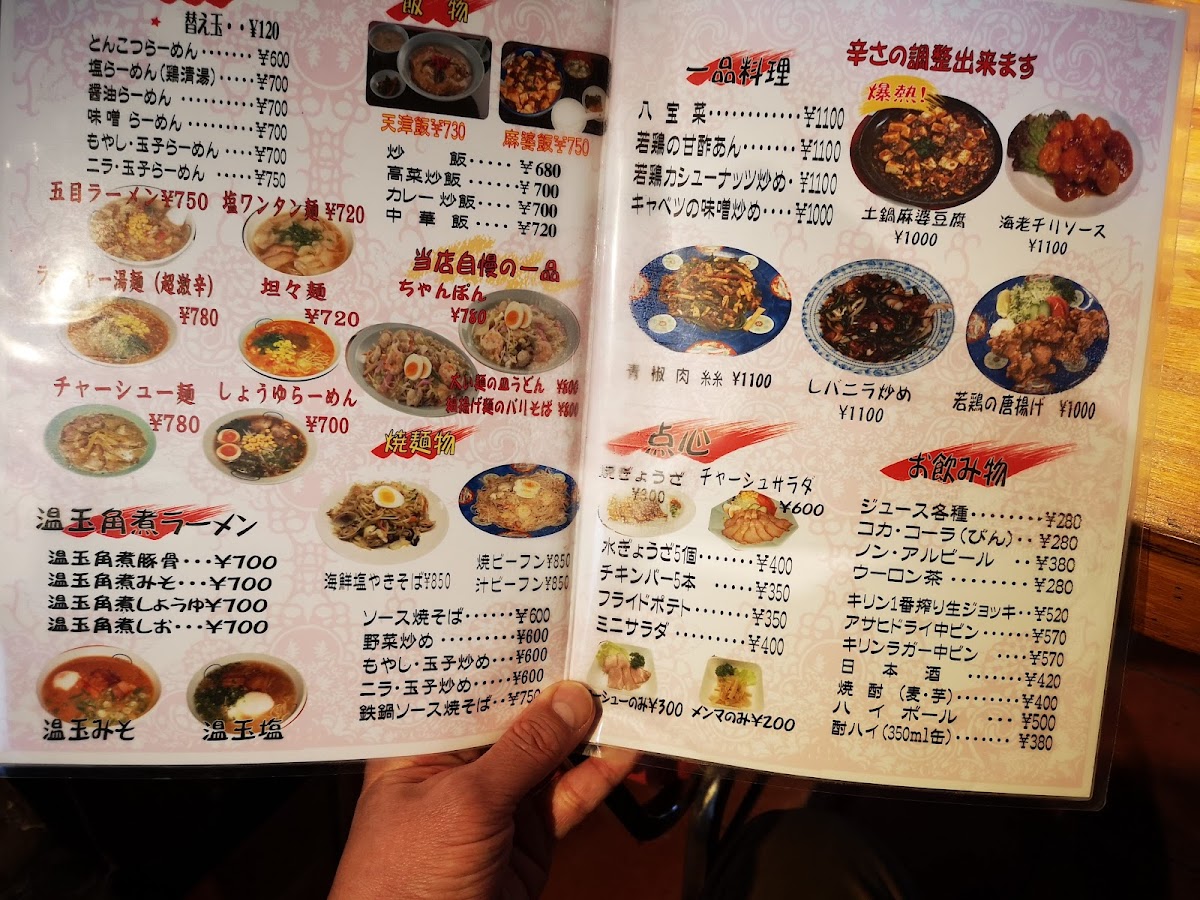 替え玉・・¥120
とんこつらーめん・・・・・・・¥600
塩らーめん(鶏清湯)・・・・・¥700
醤油らーめん・・・・・・・・・・¥700
味噌らーめん・・・・・・・・・・¥700
もやし・玉子らーめん・・・・・¥700
ニラ・玉子らーめん・・・・・¥750
五目ラーメン¥750
塩ワンタン麺¥720
湯麺(超激辛)
¥780
坦々麺
¥720
チャーシュー麺
¥780
しょうゆらーめん
¥700
温玉角煮ラーメン
温玉角煮豚骨・・・¥700
温玉角煮みそ・・・¥700
温玉角煮しょうゆ¥700
温玉角煮しお・・・¥700
温玉みそ
温玉塩
飯物
天津飯¥730
麻婆飯¥750
炒飯・・・・・¥680
高菜炒飯・・・・・・¥700
カレー炒飯・・・・¥700
中華飯・・・・¥720
当店自慢の一品
ちゃんぽん
¥780
麺の皿うどん ¥800
揚げ麺のバリそば ¥800
焼麺物
海鮮塩やきそば¥850
焼ビーフン¥850
汁ビーフン¥850
ソース焼そば・・・・・¥600
野菜炒め・・・・・・・・・¥600
もやし・玉子炒め・・・¥600
ニラ・玉子炒め・・・・¥600
鉄鍋ソース焼そば・・¥750
一品料理
辛さの調整出来ます
八宝菜・・・・・・・・・・・・¥1100
若鶏の甘酢あん・・・・・・・¥1100
若鶏カシューナッツ炒め・¥1100
キャベツの味噌炒め・・・・¥1000
爆熱!
土鍋麻婆豆腐
¥1000
海老チリソース
¥1100
青椒肉絲 ¥1100
レバニラ炒め
¥1100
若鶏の唐揚げ ¥1000
点心
焼ぎょうざ
¥300
チャーシュサラダ
¥600
水ぎょうざ5個・・・・・・¥400
チキンバー5本・・・・¥350
フライドポテト・・・・・・・¥350
ミニサラダ・・・・・・・・・¥400
ーシューのみ¥300
メンマのみ¥200
お飲み物
ジュース各種・・・・・・・・¥280
コカ・コーラ(びん)・・¥280
ノン・アルビール・・¥380
ウーロン茶・・・・・・・・¥280
キリン1番搾り生ジョッキ・・¥520
アサヒドライ中ビン・・・・・・¥570
キリンラガー中ビン・・・・¥570
日本酒・・・・・・・¥420
焼酎(麦・芋)・・・・・・・・¥400
ハイボール・・・¥500
酎ハイ(350ml缶)・・・・・・・¥380